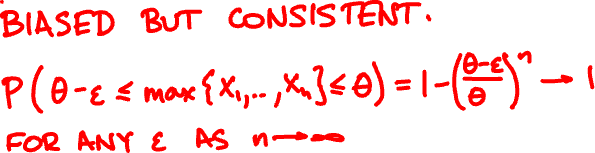 BIASED BUT CONSISTENT.
P(θ-ε ≤ max{X₁,..,Xₙ} ≤ θ) = 1-((θ-ε)/θ)ⁿ → 1
FOR ANY ε AS n→∞